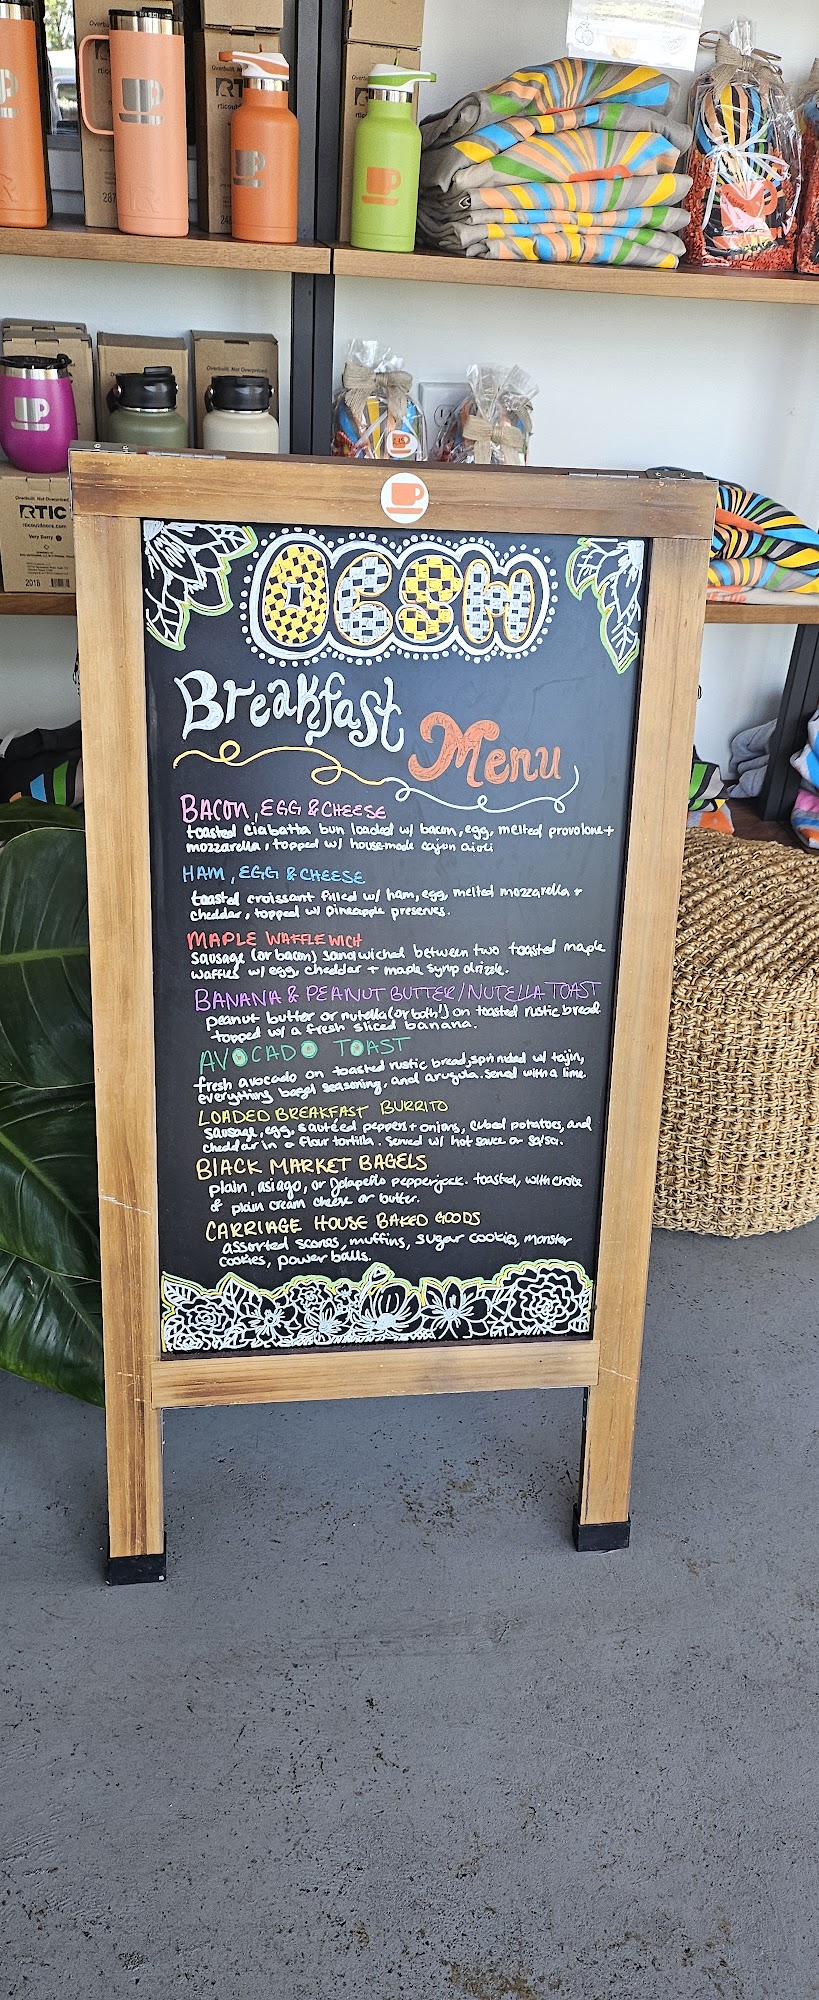 Overbuilt. Not Overpriced.
Overbuilt, Not Overpriced
RTIC
rticoutdoors.com
Very Berry
2018
OCSH
Breakfast
Menu
BACON, EGG & CHEESE
toasted ciabatta bun loaded w/ bacon, egg, melted provolone +
mozzarella, topped w/ house-made cajun aioli
HAM, EGG & CHEESE
toasted croissant filled w/ ham, egg, melted mozzarella +
cheddar, topped w/ pineapple preserves.
MAPLE WAFFLEWICH
Sausage (or bacon) sandwiched between two toasted maple
waffles w/ egg, cheddar + maple syrup drizzle.
BANANA & PEANUT BUTTER/NUTELLA TOAST
peanut butter or nutella (or both!) on toasted rustic bread
topped w/ a fresh sliced banana.
AVOCADO TOAST
fresh avocado on toasted rustic bread, sprinkled w/ tajin,
everything bagel seasoning, and arugula. served with a lime.
LOADED BREAKFAST BURRITO
sausage, egg, sautéed peppers + onions, cubed potatoes, and
cheddar in a flour tortilla. served w/ hot sauce or salsa.
BLACK MARKET BAGELS
plain, asiago, or jalapeño pepperjack. toasted, with choice
of plain cream cheese or butter.
CARRIAGE HOUSE BAKED GOODS
assorted scones, muffins, sugar cookies, monster
cookies, power balls.